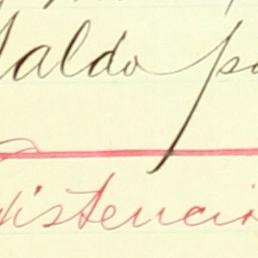 Saldo pa
Existencia